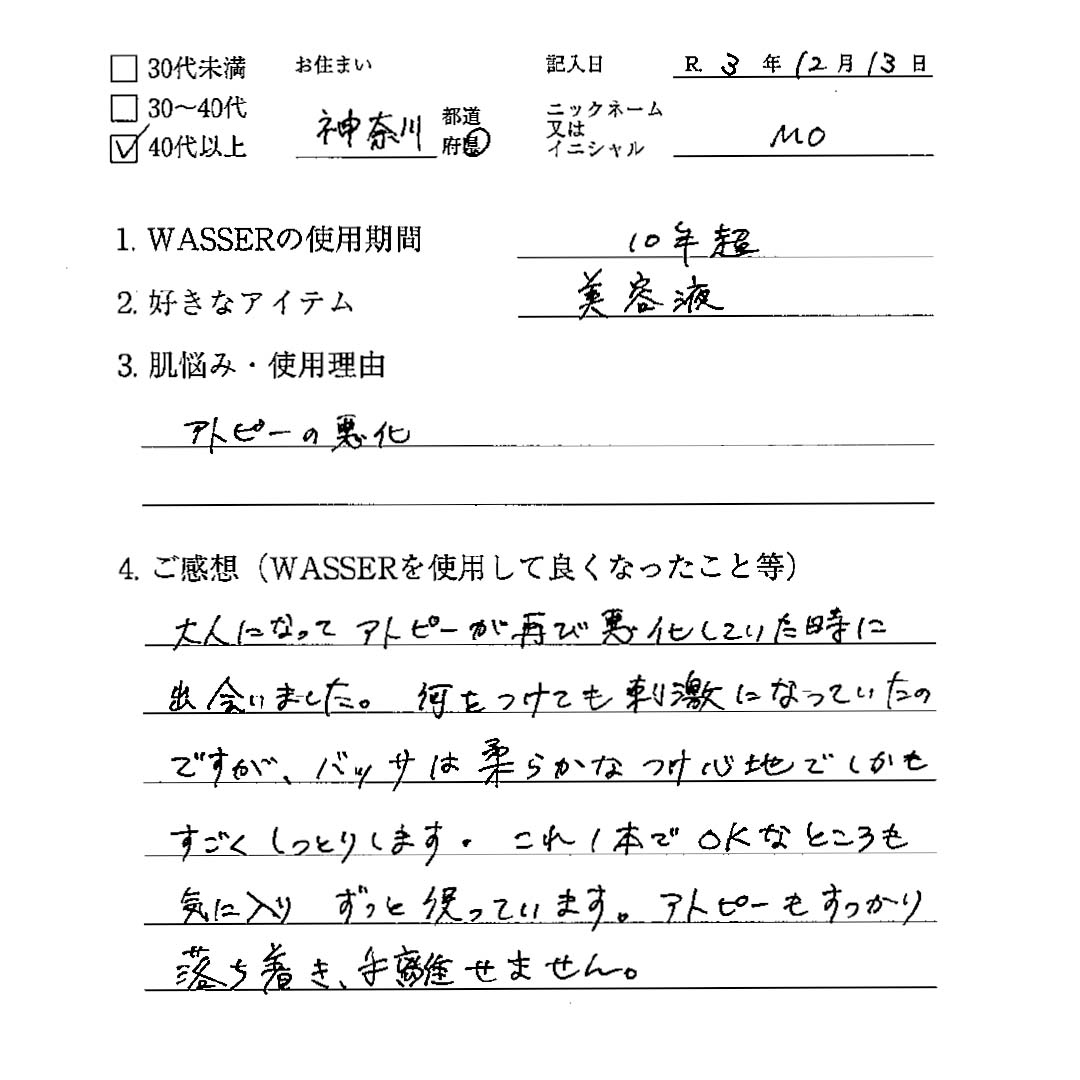 ☐ 30代未満 お住まい 記入日 R. 3 年 12 月 13 日
☐ 30〜40代 神奈川 都道府県 ニックネーム又はイニシャル MO
☑ 40代以上
1. WASSERの使用期間 10年超
2. 好きなアイテム 美容液
3. 肌悩み・使用理由
アトピーの悪化
4. ご感想（WASSERを使用して良くなったこと等）
大人になって アトピーが再び悪化していた時に
出会いました。 何をつけても刺激になっていたの
ですが、バッサは柔らかなつけ心地でしかも
すごくしっとりします。 これ1本でOKなところも
気に入り ずっと使っています。アトピーもすっかり
落ち着き、手離せません。